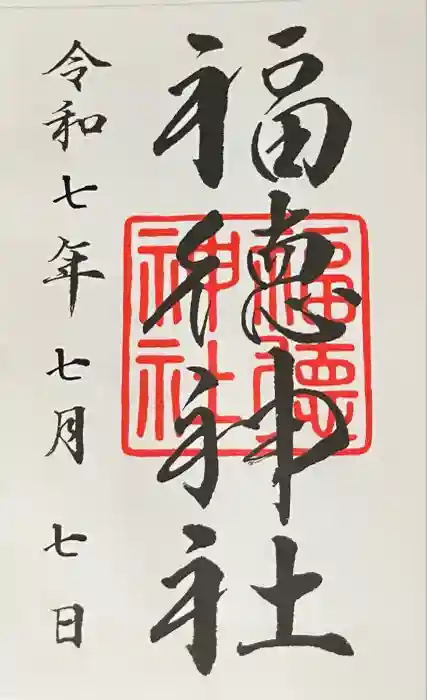 福德神社
福德神社
令和七年七月七日